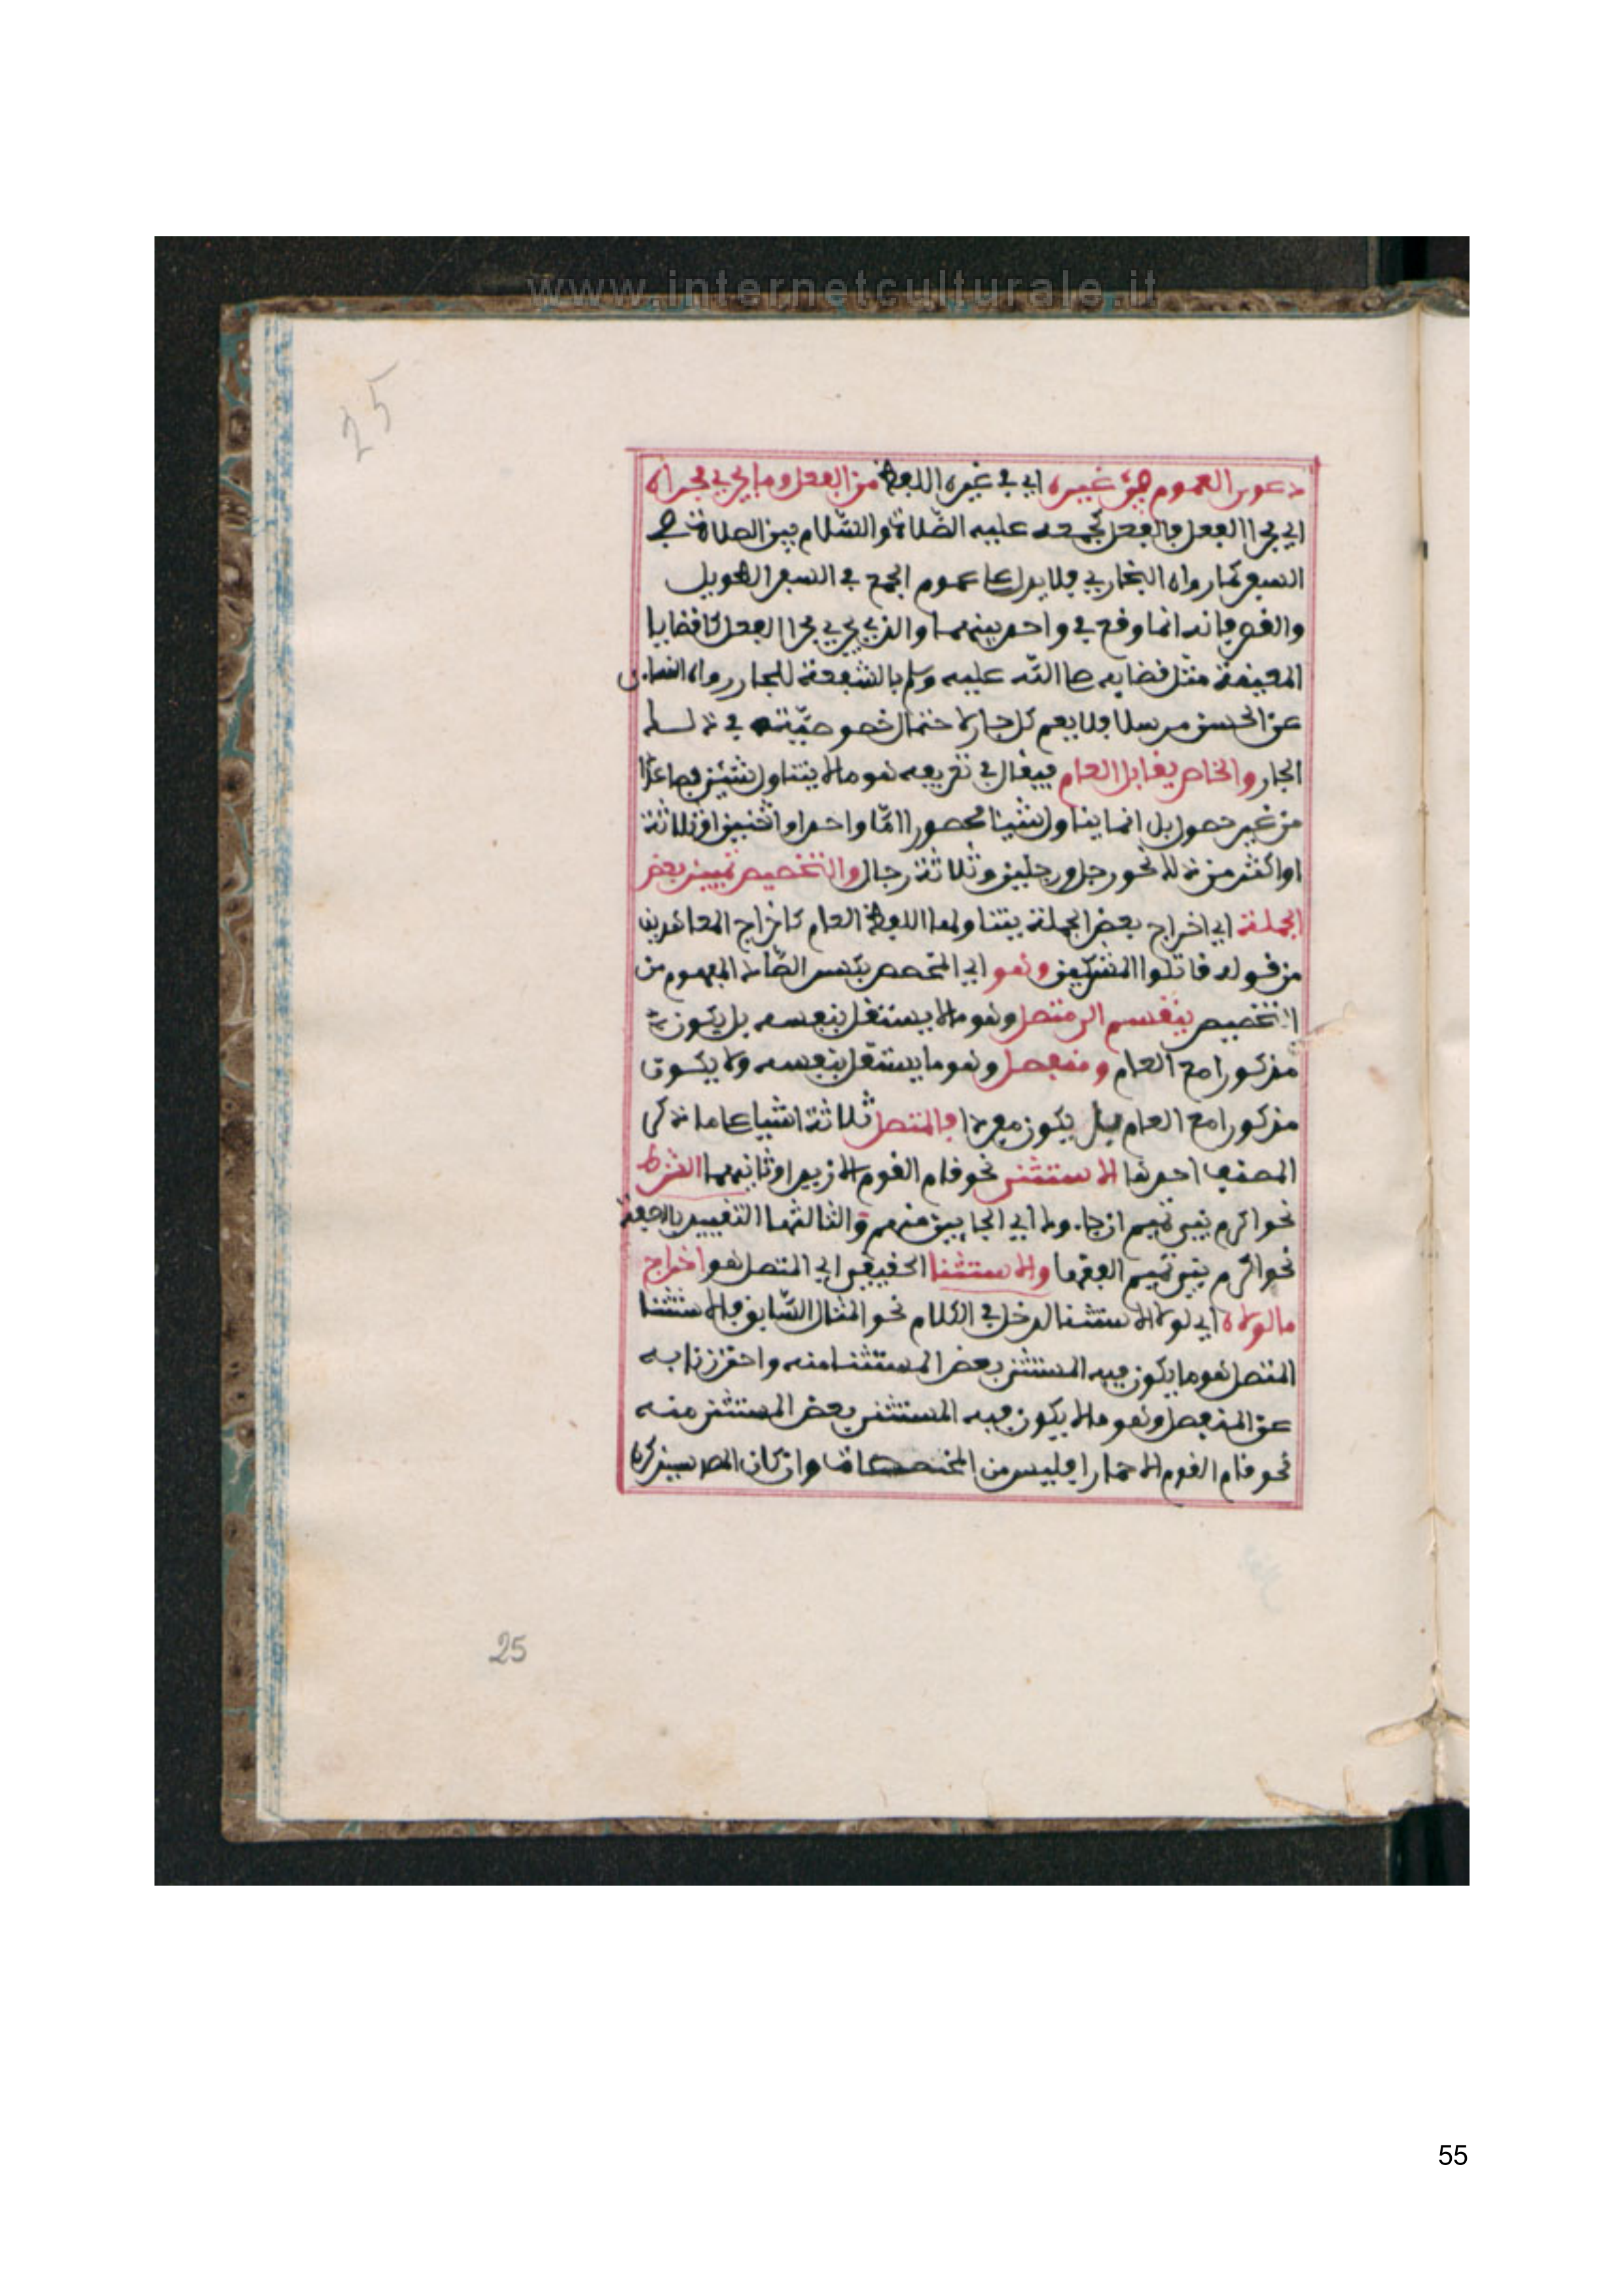 www.internetculturale.it
25
دعوى العموم في غيره اي في غيره اللفظ من الفعل وما يجري مجراه
اي مجرا الفعل فالفعل كجمعه عليه الصّلاة والسّلام بين الصلاة في
السفر كما رواه البخاري فلا يدل على عموم الجمع في السفر الطويل
والقصير فانه انما وقع في واحد بينهما والذي يجري مجرا الفعل كالقضايا
المعينة مثل قضايه صلى اللّه عليه وسلم بالشفعة للجار رواه النساىي
عن الحسن مرسلا فلا يعم كل جار لاحتمال خصوصيّته في ذلك
الجار والخاص يقابل العام فيقال في تعريفه هو ما لا يتناول شئين فصاعدا
من غير حصر بل انما يتناول شيئا محصورا امّا واحدا او اثنين او ثلاثة
او اكثر من ذلك نحو رجل ورجلين وثلاثة رجال والتخصيص تمييز بعض
الجملة اي اخراج بعض الجملة يتناولها اللفظ العام كاخراج المعاهدين
من قوله فاقتلوا المشركين وهو اي المخصص بكسر الصّاد المفهوم من
التخصيص ينقسم الى متصل وهو ما لا يستقل بنفسه بل يكون
مذكورا مع العام ومنفصل وهو ما يستقل بنفسه ولا يكون
مذكورا مع العام بل يكون مفردا فالمتصل ثلاثة اشيا على ما ذكر
المصنف احدها الاستثنى نحو قام القوم الا زيدا وثانيهما الشرط
نحو اكرم بني تميم ان جاءوك اي الجايين منهم والثالثها التقييد بالصفة
نحو اكرم بني تميم الفقها والاستثنا الحقيقي اي المتصل هو اخراج
ما لولاه اي لولا الاستثنا لدخل في الكلام نحو المثال السّابق فالاستثنا
المتصل هو ما يكون فيه المستثنى بعض المستثنا منه واحترزنا به
عن المنفصل وهو ما لا يكون فيه المستثنى بعض المستثنى منه
نحو قام القوم الا حمارا فليس من المخصصات وان كان المص سيذكره
25
55